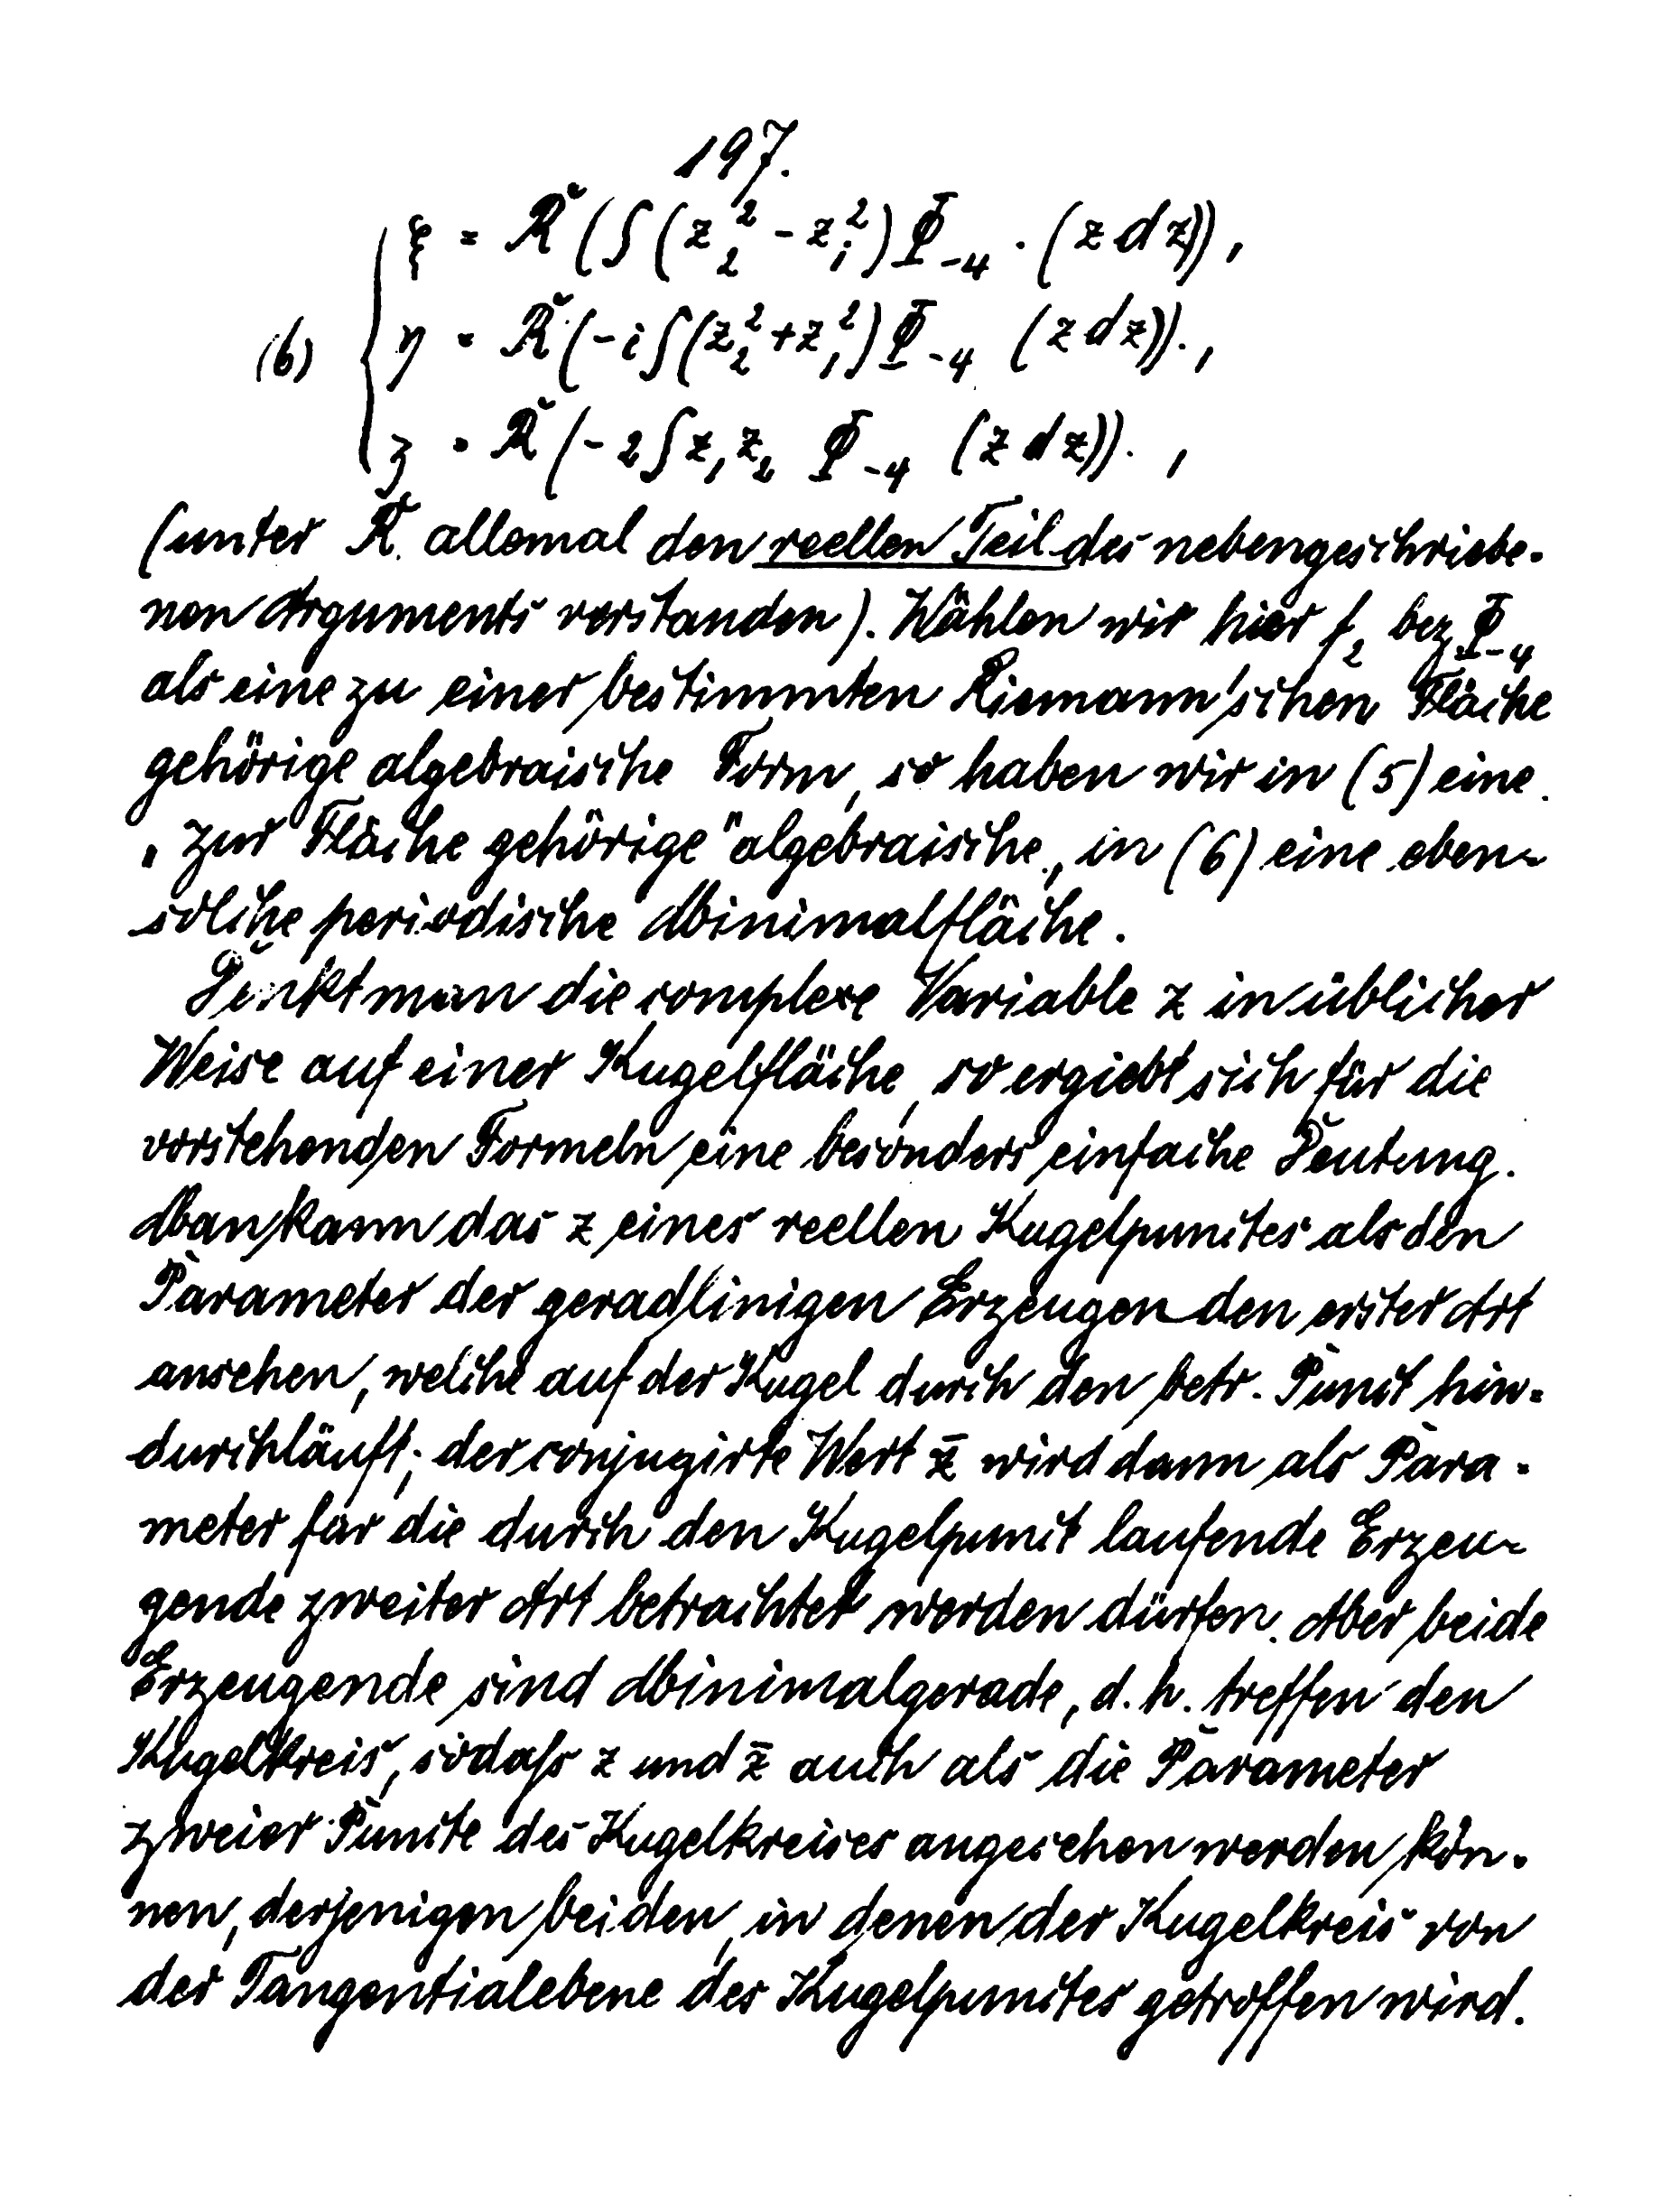 197.
ξ = R (∫ (z₂² - z₁²) Φ₋₄ · (z dz)),
(6) η = R (-i ∫ (z₂² + z₁²) Φ₋₄ (z dz)).,
ʒ = R (-2 ∫ z₁ z₂ Φ₋₄ (z dz)). ,
(unter R. allemal den reellen Teil des nebengeschriebe-
nen Arguments verstanden). Wählen wir hier f₂ bez Φ₋₄
als eine zu einer bestimmten Riemann'schen Fläche
gehörige algebraische Form, so haben wir in (5) eine
„zur Fläche gehörige" algebraische, in (6) eine eben-
solche periodische Minimalfläche.
Denkt man die complexe Variable z in üblicher
Weise auf einer Kugelfläche, so ergiebt sich für die
vorstehenden Formeln eine besonders einfache Deutung.
Man kann das z eines reellen Kugelpunctes als den
Parameter der geradlinigen Erzeugenden erster Art
ansehen, welche auf der Kugel durch den betr. Punct hin-
durchläuft; der conjugirte Wert z̄ wird dann als Para-
meter für die durch den Kugelpunct laufende Erzeu-
gende zweiter Art betrachtet werden dürfen. Aber beide
Erzeugende sind Minimalgerade, d. h. treffen den
Kugelkreis, sodaß z und z̄ auch als die Parameter
zweier Puncte des Kugelkreises angesehen werden kön-
nen, derjenigen beiden, in denen der Kugelkreis von
der Tangentialebene des Kugelpunctes getroffen wird.